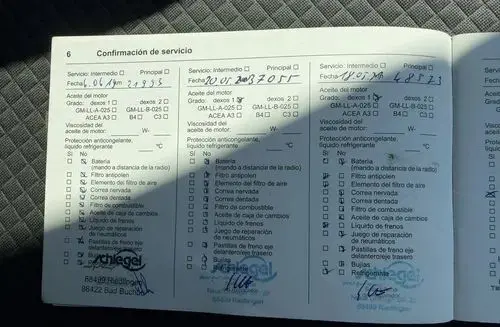 6 Confirmación de servicio
Servicio: Intermedio Principal
Fecha
Aceite del motor
Grado: dexos 1 dexos 2
GM-LL-A-025 GM-LL-B-025
ACEA A3 B4 C3
Viscosidad del
aceite de motor: W-
Protección anticongelante,
líquido refrigerante °C
Sí No
Batería
(mando a distancia de la radio)
Filtro antipolen
Elemento del filtro de aire
Correa nervada
Correa dentada
Filtro de combustible
Aceite de caja de cambios
Líquido de frenos
Juego de reparación
de neumáticos
Pastillas de freno eje
delantero/eje trasero
Bujías
schlegel
88499 Riedlingen
88422 Bad Buchau
Servicio: Intermedio Principal
Fecha 37055
Aceite del motor
Grado: dexos 1 dexos 2
GM-LL-A-025 GM-LL-B-025
ACEA A3 B4 C3
Viscosidad del
aceite de motor: W-
Protección anticongelante,
líquido refrigerante °C
Sí No
Batería
(mando a distancia de la radio)
Filtro antipolen
Elemento del filtro de aire
Correa nervada
Correa dentada
Filtro de combustible
Aceite de caja de cambios
Líquido de frenos
Juego de reparación
de neumáticos
Pastillas de freno eje
delantero/eje trasero
Bujías
Refrigerante
schlegel
88499 Riedlingen
Servicio: Intermedio Principal
Fecha 48573
Aceite del motor
Grado: dexos 1 dexos 2
GM-LL-A-025 GM-LL-B-025
ACEA A3 B4 C3
Viscosidad del
aceite de motor: W-
Protección anticongelante,
líquido refrigerante °C
Sí No
Batería
(mando a distancia de la radio)
Filtro antipolen
Elemento del filtro de aire
Correa nervada
Correa dentada
Filtro de combustible
Aceite de caja de cambios
Líquido de frenos
Juego de reparación
de neumáticos
Pastillas de freno eje
delantero/eje trasero
Bujías
Refrigerante
schlegel
88499 Riedlingen